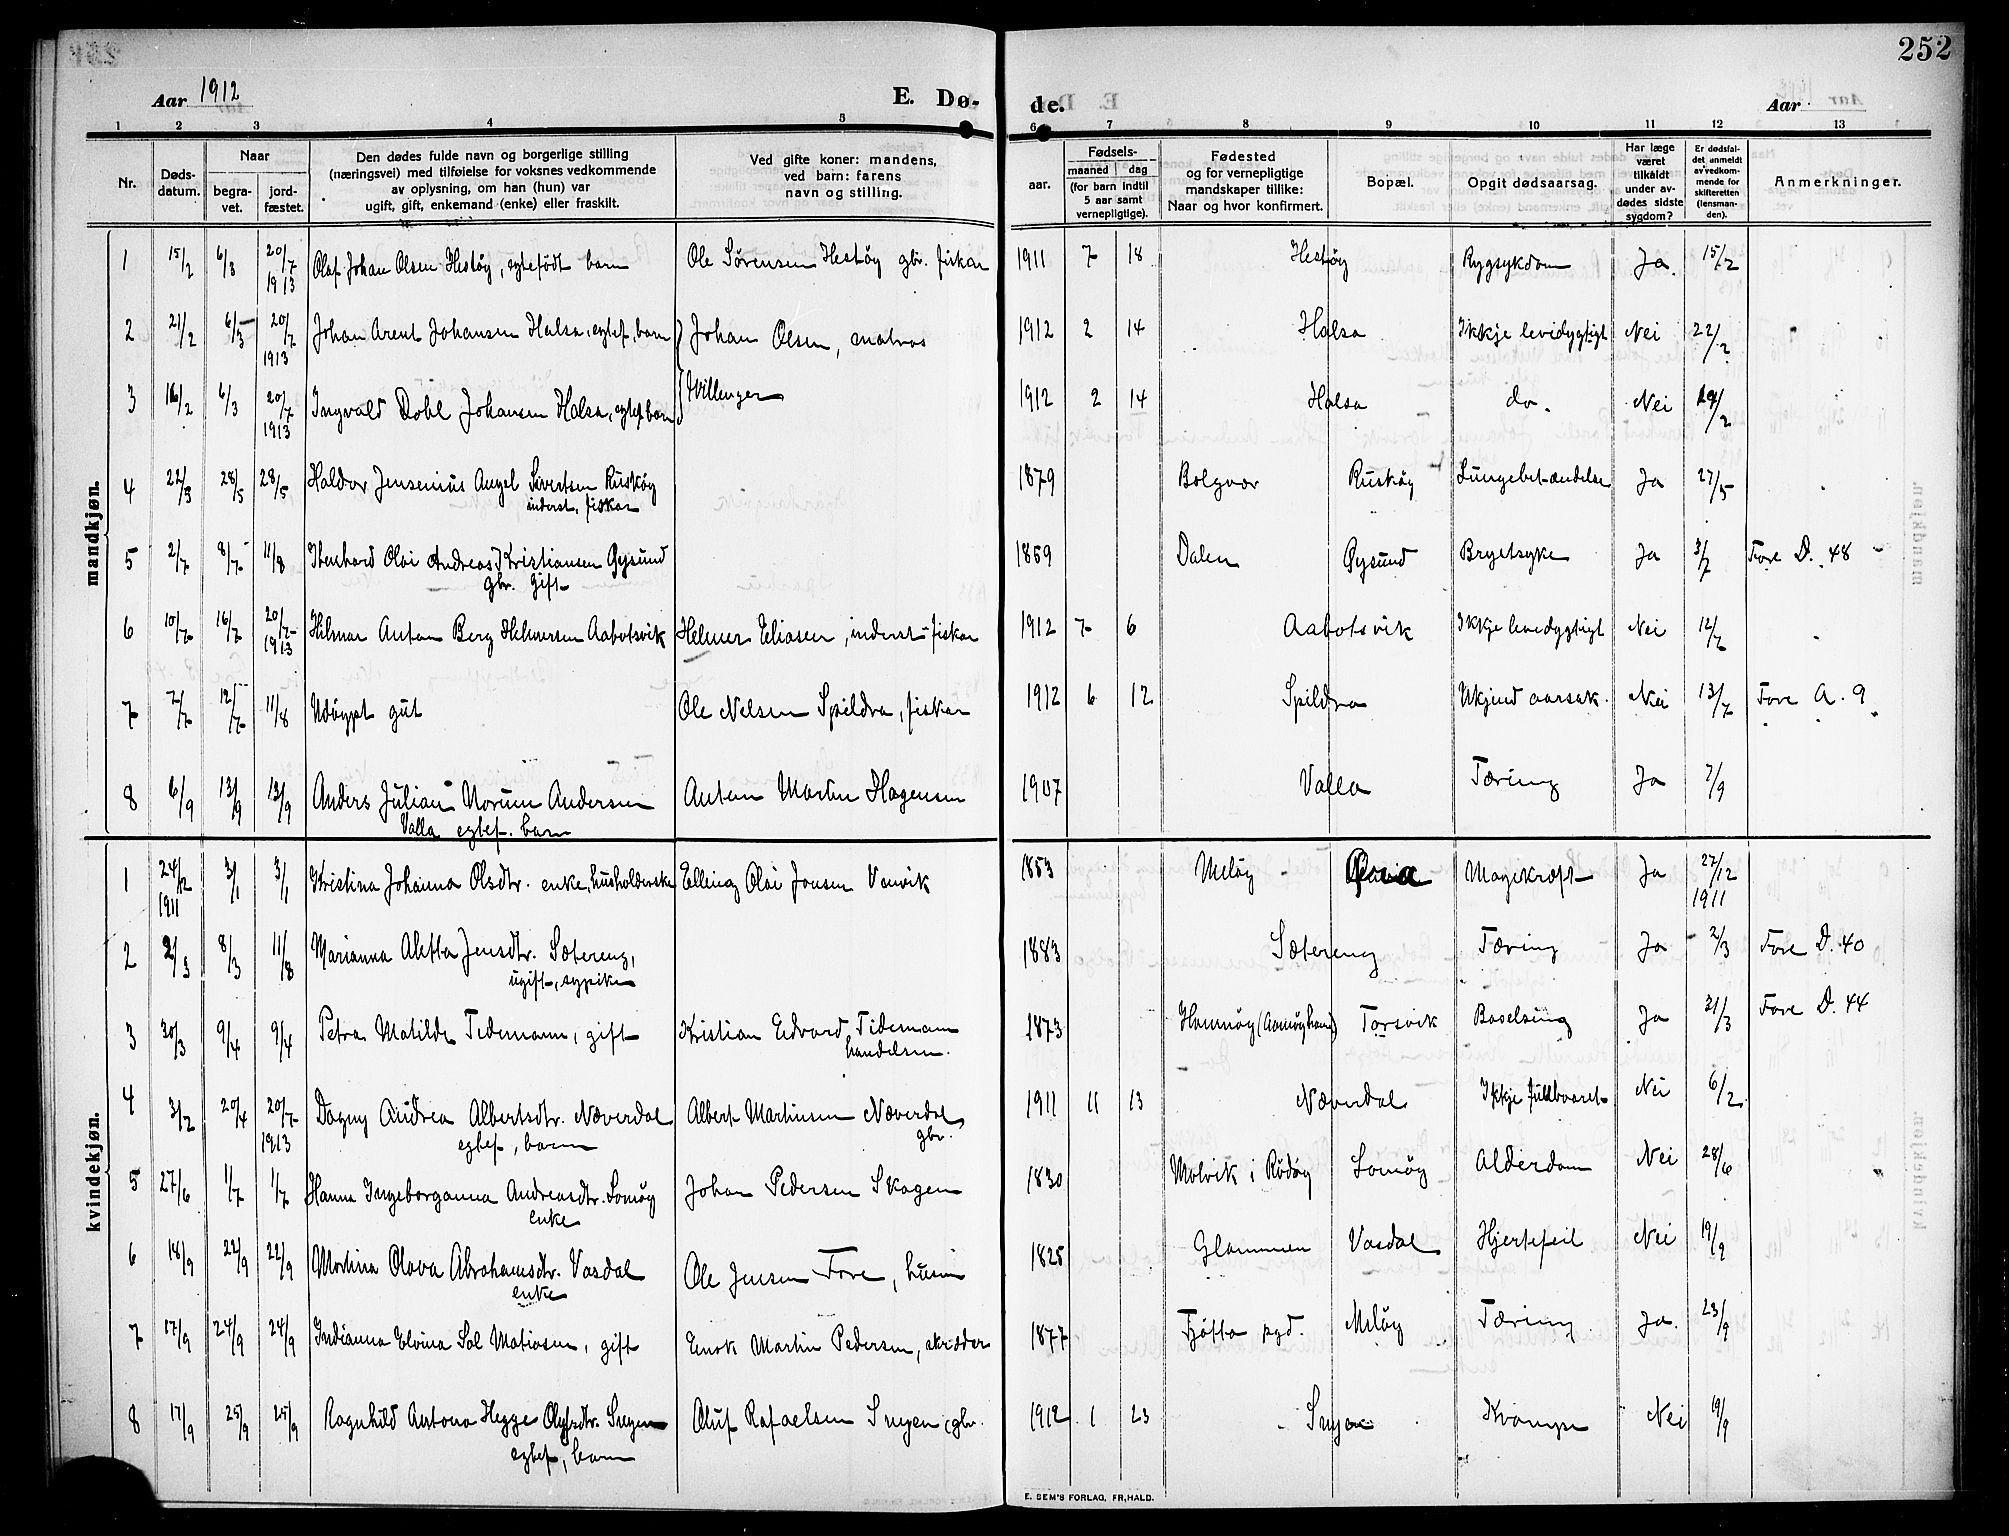 252
Aar 1912
E. Dø-
de.
Aar
1 2 3 4 5 6 7 8 9 10 11 12 13
Nr.
Døds-
datum.
Naar
begra-
vet.
jord-
fæstet.
Den dødes fulde navn og borgerlige stilling
(næringsvei) med tilføielse for voksnes vedkommende
av oplysning, om han (hun) var
ugift, gift, enkemand (enke) eller fraskilt.
Ved gifte koner: mandens,
ved barn: farens
navn og stilling.
Fødsels-
aar.
maaned dag
(for barn indtil
5 aar samt
vernepligtige).
Fødested
og for vernepligtige
mandskaper tillike:
Naar og hvor konfirmert.
Bopæl.
Opgit dødsaarsag.
Har læge
været
tilkaldt
under av-
dødes sidste
sygdom?
Er dødsfal-
det anmeldt
av vedkom-
mende for
skifteretten
(lensman-
den).
Anmerkninger.
mandkjøn.
1 15/2 6/3 20/7 1913 Olaf Johan Olsen Hestøy, egtefødt barn Ole Sørensen Hestøy gbr. fiskar 1911 7 18 Hestøy Rygsykdom Ja. 15/2
2 21/2 6/3 20/7 1913 Johan Arent Johansen Halsa, egtef. barn Johan Olsen, matros 1912 2 14 Halsa Ikkje levidygtigt Nei 22/2
3 16/2 6/3 20/7 1913 Ingvald Dahl Johansen Halsa, egtef. barn Willenger 1912 2 14 Halsa do. Nei 19/2
4 22/3 28/5 28/5 Haldor Jensenius Angel Sivertsen Ruskøy
inderst, fiskar 1879 Bolgvær Ruskøy Lungebet-ændelse Ja 27/5
5 2/7 8/7 11/8 Olai Andreas Kristiansen Øysund
gbr. gift 1859 Dalen Øysund Brystsyke Ja 3/7 Fore D. 48
6 10/7 16/7 20/7 1913 Hilmar Anton Berg Helmersen Aabotsvik Helmer Eliasen, inderst-fiskar 1912 7 6 Aabotsvik Ikkje levedygtigt Nei 12/7
7 7/7 12/7 11/8 Udøypt gut Ole Nelsen Spildra, fiskar 1912 6 12 Spildra Ukjend aarsak. Nei 13/7 Fore A. 9
8 6/9 13/9 13/9 Anders Julian Norum Andersen
Valla egtef. barn Anton Martin Hagensen 1907 Valla Tæring Ja 7/9
kvindekjøn.
1 24/12 1911 3/1 3/1 Kristina Johanna Olsdtr. enke, husholderske Elling Olai Jonsen Vanvik 1853 Meløy Magekræft Ja 27/12 1911
2 2/3 8/3 11/8 Marianna Aletta Jensdtr. Sætereng,
ugift, sypike 1883 Sætereng Tæring Ja 2/3 Fore D. 40
3 30/3 9/4 9/4 Petra Matilde Tidemann, gift Kristian Edvard Tidemann
handelsm. 1873 Hamnøy (Aamøyhamn) Torsvik Baselsing Ja 31/3 Fore D. 44
4 3/2 20/4 20/7 1913 Dagny Andrea Albertsdtr. Næverdal
egtef, barn Albert Martinsen Næverdal,
gbr. 1911 11 13 Næverdal Ikkje fuldbaaret Nei 6/2
5 27/6 1/7 1/7 Hanna Ingeborganna Andreasdtr. Somøy
enke Johan Pedersen Skagen 1830 Molvik i Rødøy Somøy Alderdom Nei 28/6
6 18/9 22/9 22/9 Martina Olava Abrahamsdtr. Vasdal
enke Ole Jensen Fore, husm 1825 Glommen Vasdal Hjertefeil Nei 19/9
7 17/9 24/9 24/9 Indianna Elvina Sol Matiasen, gift Enok Martin Pedersen, skrædder 1877 Tjøtta pgd. Meløy Tæring Ja. 23/9
8 17/9 25/9 25/9 Ragnhild Antona Hegge Olufsdtr. Snyen
egtef, barn Oluf Rafaelsen Snyen, gbr. 1912 1 23 Snyen Krampe Nei 19/9
E. SEM'S FORLAG, FR,HALD.